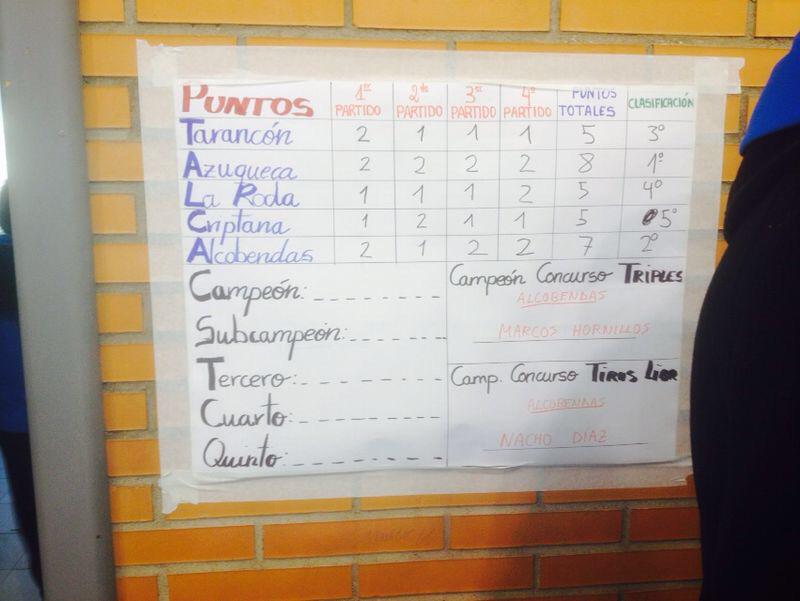 PUNTOS 1er PARTIDO 2do PARTIDO 3er PARTIDO 4º PARTIDO PUNTOS TOTALES CLASIFICACIÓN
Tarancón 2 1 1 1 5 3º
Azuqueca 2 2 2 2 8 1º
La Roda 1 1 1 2 5 4º
Criptana 1 2 1 1 5 5º
Alcobendas 2 1 2 2 7 2º
Campeón:
Subcampeón:
Tercero:
Cuarto:
Quinto:
Campeón Concurso TRIPLES
ALCOBENDAS
MARCOS HORNILLOS
Camp. Concurso TIROS LIBR
ALCOBENDAS
NACHO DÍAZ